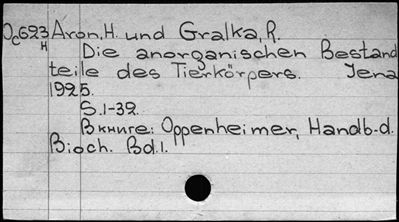 Oc623 Aron, H. und Gralka, R.
H
Die anorganischen Bestand
teile des Tierkörpers. Jena
1925.
S.1-32.
В книге: Oppenheimer, Handb-d.
Bioch. Bd.1.